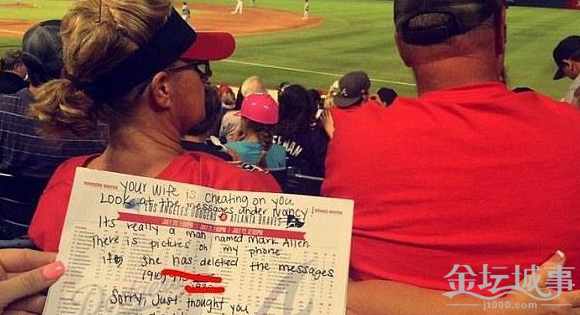 your wife is cheating on you
Look at the messages under Nancy!
LOS ANGELES DODGERS ATLANTA BRAVES
Its really a man named Mark Allen
There is pictures on my phone
if she has deleted the messages
Sorry, Just thought you
金坛城事
jt000.com